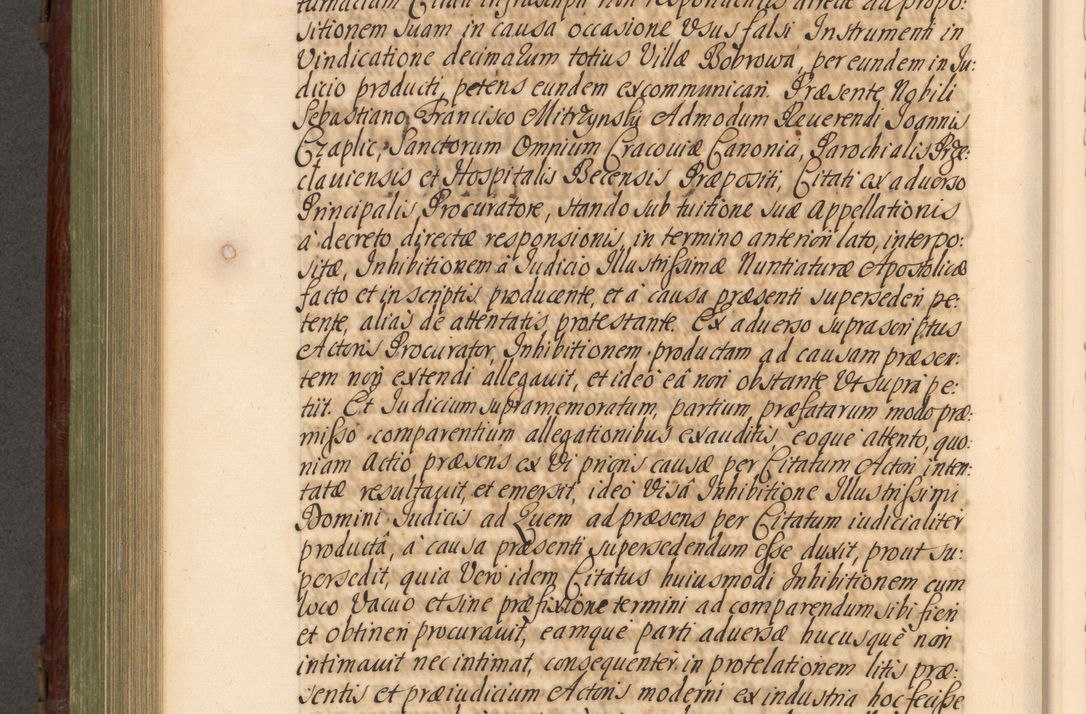 tumaciam Citati infrascripti non respondentis directe ad propo:
sitionem suam in causa occasione Vsus falsi Instrumenti in
Vindicatione decimarum totius Villæ Bobrowa, per eundem in Ju:
dicio producti, petens eundem excommunicari. Præsente Nobili
Sebastiano Francisco Mitrzynsky Admodum Reuerendi Joannis
Czaplic, Sanctorum Omnium Cracoviæ Canonici, Parochialis Prze:
clauiensis et Hospitalis Becensis Præpositi, Citati ex aduerso
Principalis Procuratore, stando sub tuitione suæ Appellationis
à decreto directæ responsionis, in termino anteriori lato, interpo:
sitæ, Inhibitionem à Iudicio Illustrissimæ Nuntiaturæ Apostolicæ
facto et in scriptis producente, et à causa præsenti supersederi pe:
tente, alias de attentatis protestante. Ex aduerso suprascriptus
Actoris Procurator, Inhibitionem productam ad causam præsen:
tem non extendi allegauit, et ideò eâ non obstante Vt supra pe:
tiit. Et Iudicium supramemoratum, partium præfatarum modo præ:
misso comparentium allegationibus exauditis, eoque attento, quo:
niam Actio præsens ex Vi prioris causæ per Citatum Actori inten:
tatæ resultauit, et emersit, ideò Visâ Inhibitione Illustrissimi
Domini Iudicis ad Quem ad præsens per Citatum iudicialiter
productâ, à causa præsenti supersedendum esse duxit, prout su:
persedit, quia Vero idem Citatus huiusmodi Inhibitionem cum
loco Vacuo et sine præfixione termini ad comparendum sibi fieri
et obtineri procurauit, eamque parti aduersæ hucusquè non
intimauit nec intimat, consequenter in protelationem litis præ:
sentis et præiudicium Actoris moderni ex industria hoc fecisse